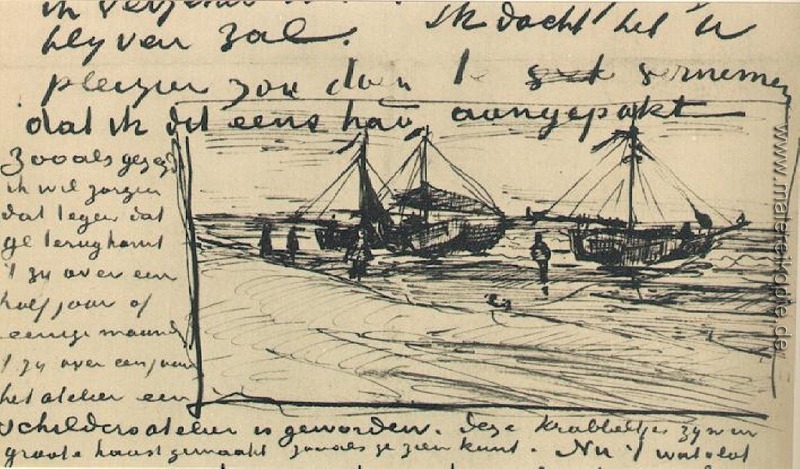 ik verzekerd
blyven zal. Ik dacht het U
plezier zou doen te vernemen
dat ik dit eens had aangepakt
Zooals gezegd
ik wil zorgen
dat tegen dat
ge terugkomt
't zy over een
half jaar of
eenige maand
't zy over een jaar
het atelier een
schilders atelier is geworden. deze krabbeltjes zyn in
groote haast gemaakt zooals ge zien kunt. Nu 't wat
www.malereikopie.de